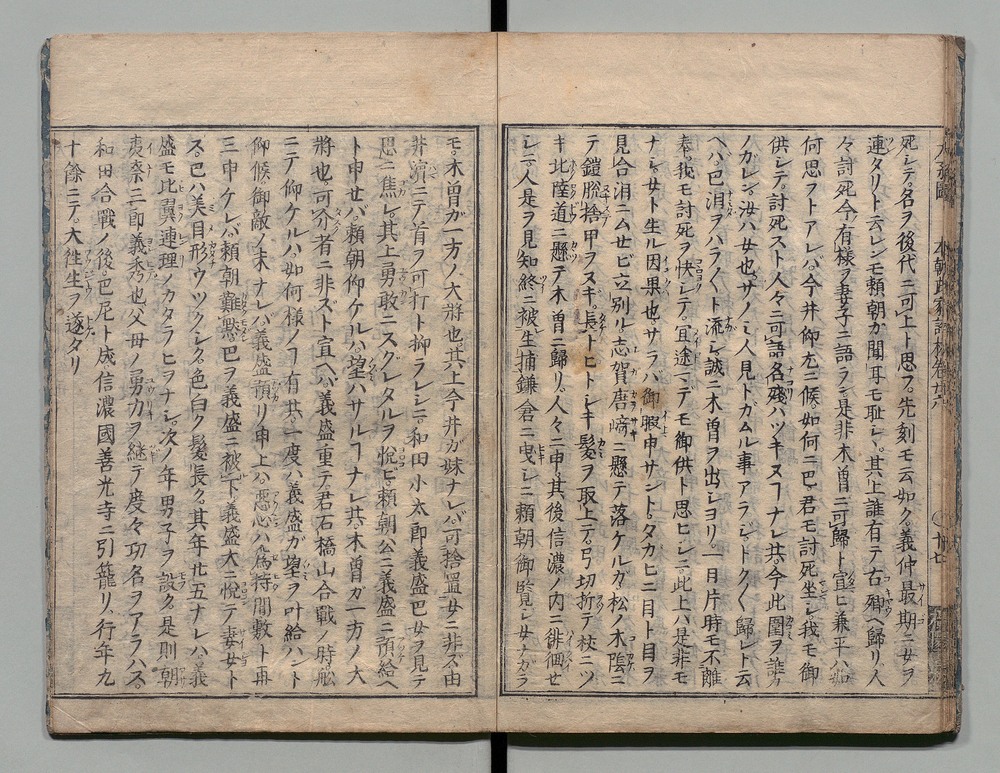 死シテ名ヲ後代ニ可上ト思フ。先刻モ云如ク。義仲最期ニ女ヲ
連タリト云レンモ頼朝カ聞耳モ恥シ。其上誰有テ古郷ヘ帰リ。人
々討死今有様ヲ妻子ニ語ラン。是非木曽ニ可歸ト宣ヒ兼平ハ如
何思フトアレバ。今井仰尤ニ候如何ニ巴。君モ討死坐シ我モ御
供シテ。討死スト人々ニ可語各殘ハツキヌコナレ共。今此圍ヲ誰カ
ノガレン。汝ハ女也サノミ人見トカムル事アラジトク〱歸レト云
ヘハ。巴泪ヲハラ〱ト流シ誠ニ木曽ヲ出シヨリ。一日片時モ不離
奉。我モ討死ヲ快シテ。冥途マデモ御供ト思ヒシニ此上ハ是非モ
ナシ。女ト生ル因果也サラバ御暇申サントタカヒニ目ト目ヲ
見合泪ニムセビ立別レ志賀唐﨑ニ懸テ落ケルガ松ノ木陰ニ
テ鎧脱捨甲ヲヌキ。長トヒトシキ髮ヲ取上テ。弓切折テ杖ニツ
キ北陸道ニ懸テ木曽ニ歸リ。人々ニ申。其後信濃ノ内ニ徘徊セ
シニ人是ヲ見知終ニ被生捕鎌倉ニ曳シニ頼朝御覧シ女ナガラ
モ。木曽ガ一方ノ大將也。其上今井ガ妹ナレバ。可捨置女ニ非ズ。由
井濱ニテ首ヲ可打ト抑ラレシニ。和田小太郎義盛巴女ヲ見テ
思ニ焦レ。其上勇敢ニスグレタルヲ悦ヒ。頼朝公ニ義盛ニ預給ヘ
ト申セバ。頼朝仰ケルハ望ハサルコナレ共。木曽ガ一方ノ大
將也。可分者ニ非ズト宣ヘバ。義盛重テ君石橋山合戰ノ時舩
ニテ仰ケルハ。如何樣ノコ有共。一度ハ義盛ガ望ヲ叶給ハント
仰候御敵ノ末ナレバ。義盛預リ申上ハ。惡心ハ爲持間敷ト再
三申ケレバ。頼朝難黙巴ヲ義盛ニ被下義盛大ニ悦テ妻女ト
ス。巴ハ美目形ウツクシク。色白ク髮長ク。其年廿五ナレハ。義
盛モ比翼連理ノカタラヒヲナシ。次ノ年男子ヲ設ク。是則朝
夷奈三郎義秀也。父母ノ勇力ヲ継テ度々功名ヲアラハス。
和田合戰ノ後。巴尼ト成信濃國善光寺ニ引籠リ。行年九
十餘ニテ。大徃生ヲ遂タリ